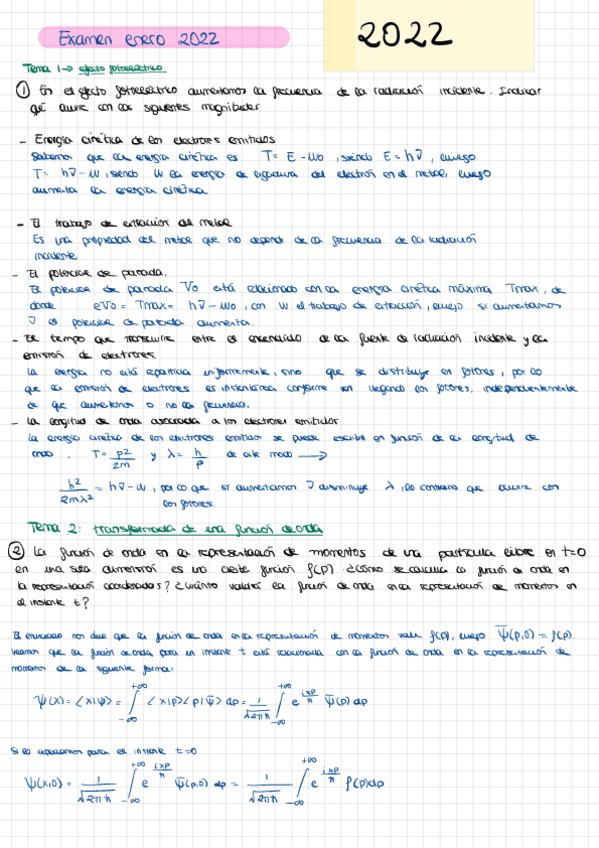 Examen enero 2022
2022
Tema 1 → efecto fotoeléctrico
① En el efecto fotoeléctrico aumentamos la frecuencia de la radiación incidente. Indicar
qué ocurre con las siguientes magnitudes
- Energía cinética de los electrones emitidos
Sabemos que la energía cinética es T = E - W₀, siendo E = hν, luego
T = hν - W, siendo W la energía de ligadura del electrón en el metal, luego
aumenta la energía cinética.
- El trabajo de extracción del metal
Es una propiedad del metal que no depende de la frecuencia de la radiación
incidente
- El potencial de parada.
El potencial de parada V₀ está relacionado con la energía cinética máxima Tmax, de
donde eV₀ = Tmax = hν - W₀, con W el trabajo de extracción, luego si aumentamos
ν el potencial de parada aumenta.
- El tiempo que transcurre entre el encendido de la fuente de radiación incidente y la
emisión de electrones.
La energía no está repartida uniformemente, sino que se distribuye en fotones, por lo
que la emisión de electrones es instantánea conforme van llegando los fotones, independientemente
de que aumentemos o no la frecuencia.
- La longitud de onda asociada a los electrones emitidos
La energía cinética de los electrones emitidos se puede escribir en función de la longitud de
onda . T = p²/2m y λ = h/p de este modo →
h²/2mλ² = hν - W, por lo que si aumentamos ν disminuye λ, lo contrario que ocurre con
los fotones.
Tema 2: transformada de una función de onda
② La función de onda en la representación de momentos de una partícula libre en t=0
en una sola dimensión es una cierta función f(p). ¿Cómo se calcula la función de onda en
la representación coordenadas? ¿Cuánto valdrá la función de onda en la representación de momentos en
el instante t?
El enunciado nos dice que la función de onda en la representación de momentos vale f(p), luego ψ̄(p,0) = f(p).
Veamos que la función de onda para un instante t está relacionada con la función de onda en la representación de
momentos de la siguiente forma:
ψ(x) = <x|ψ> = ∫_{-∞}^{+∞} <x|p><p|ψ̄> dp = 1/√(2πħ) ∫_{-∞}^{+∞} e^{ixp/ħ} ψ̄(p) dp
Si lo aplicamos para el instante t=0
ψ(x,0) = 1/√(2πħ) ∫_{-∞}^{+∞} e^{ixp/ħ} ψ̄(p,0) dp = 1/√(2πħ) ∫_{-∞}^{+∞} e^{ixp/ħ} f(p) dp